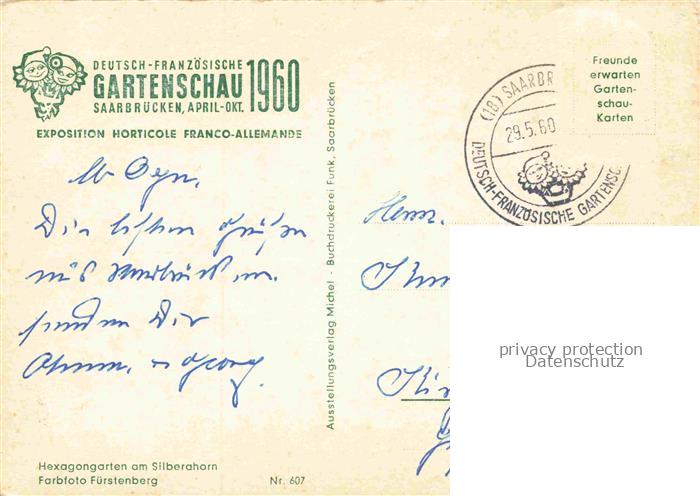 DEUTSCH-FRANZÖSISCHE
GARTENSCHAU 1960
SAARBRÜCKEN, APRIL-OKT.
EXPOSITION HORTICOLE FRANCO-ALLEMANDE
Die besten Grüße
aus Saarbrücken
senden Dir
u. Georg.
Ausstellungsverlag Michel - Buchdruckerei Funk, Saarbrücken
(18) SAARBR
29.5.60
DEUTSCH-FRANZÖSISCHE GARTENSC
Freunde
erwarten
Garten-
schau-
Karten
Herrn
privacy protection
Datenschutz
Hexagongarten am Silberahorn
Farbfoto Fürstenberg
Nr. 607